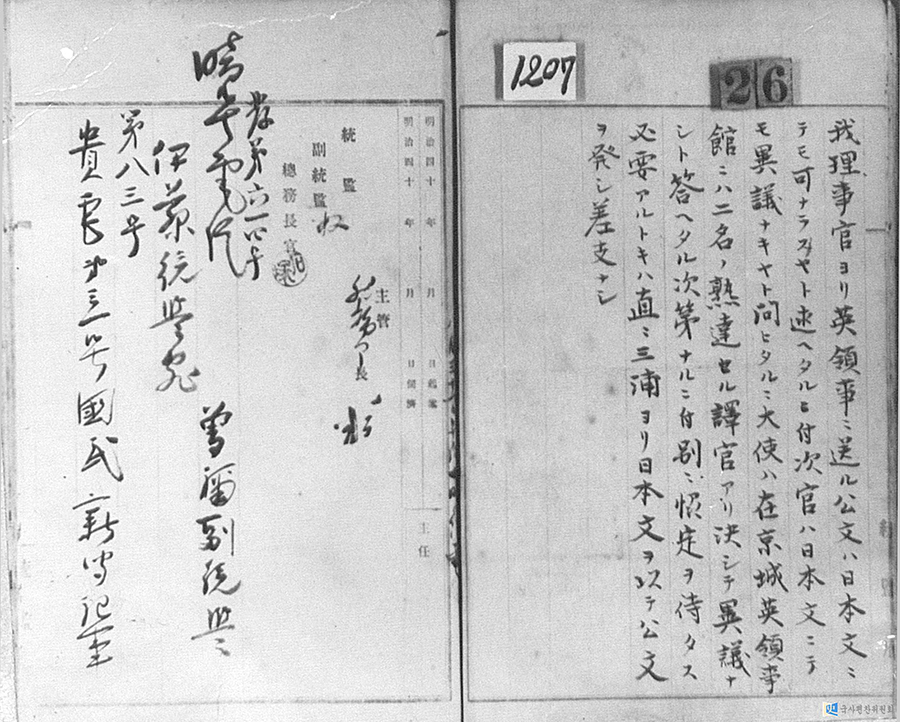 1207
26
我理事官ヨリ英領事ニ送ル公文ハ日本文ニ
テモ可ナラスヤト述ヘタルニ付次官ハ日本文ニテ
モ異議ナキヤト問ヒタルニ大使ハ在京城英領事
館ニハ二名ノ熟達セル譯官アリ決シテ異議ナ
シト答ヘタル次第ナルニ付別ニ協定ヲ待タス
必要アルトキハ直ニ三浦ヨリ日本文ヲ以テ公文
ヲ発シ差支ナシ
明治四十年 月 日
明治四十年 月 日
主任
統監
副統監
總務長官
主管
長
暗号電汽
第六一四号
伊藤統監宛
曽禰副統監
第八三号
貴電第三号國民新聞記事
국사편찬위원회